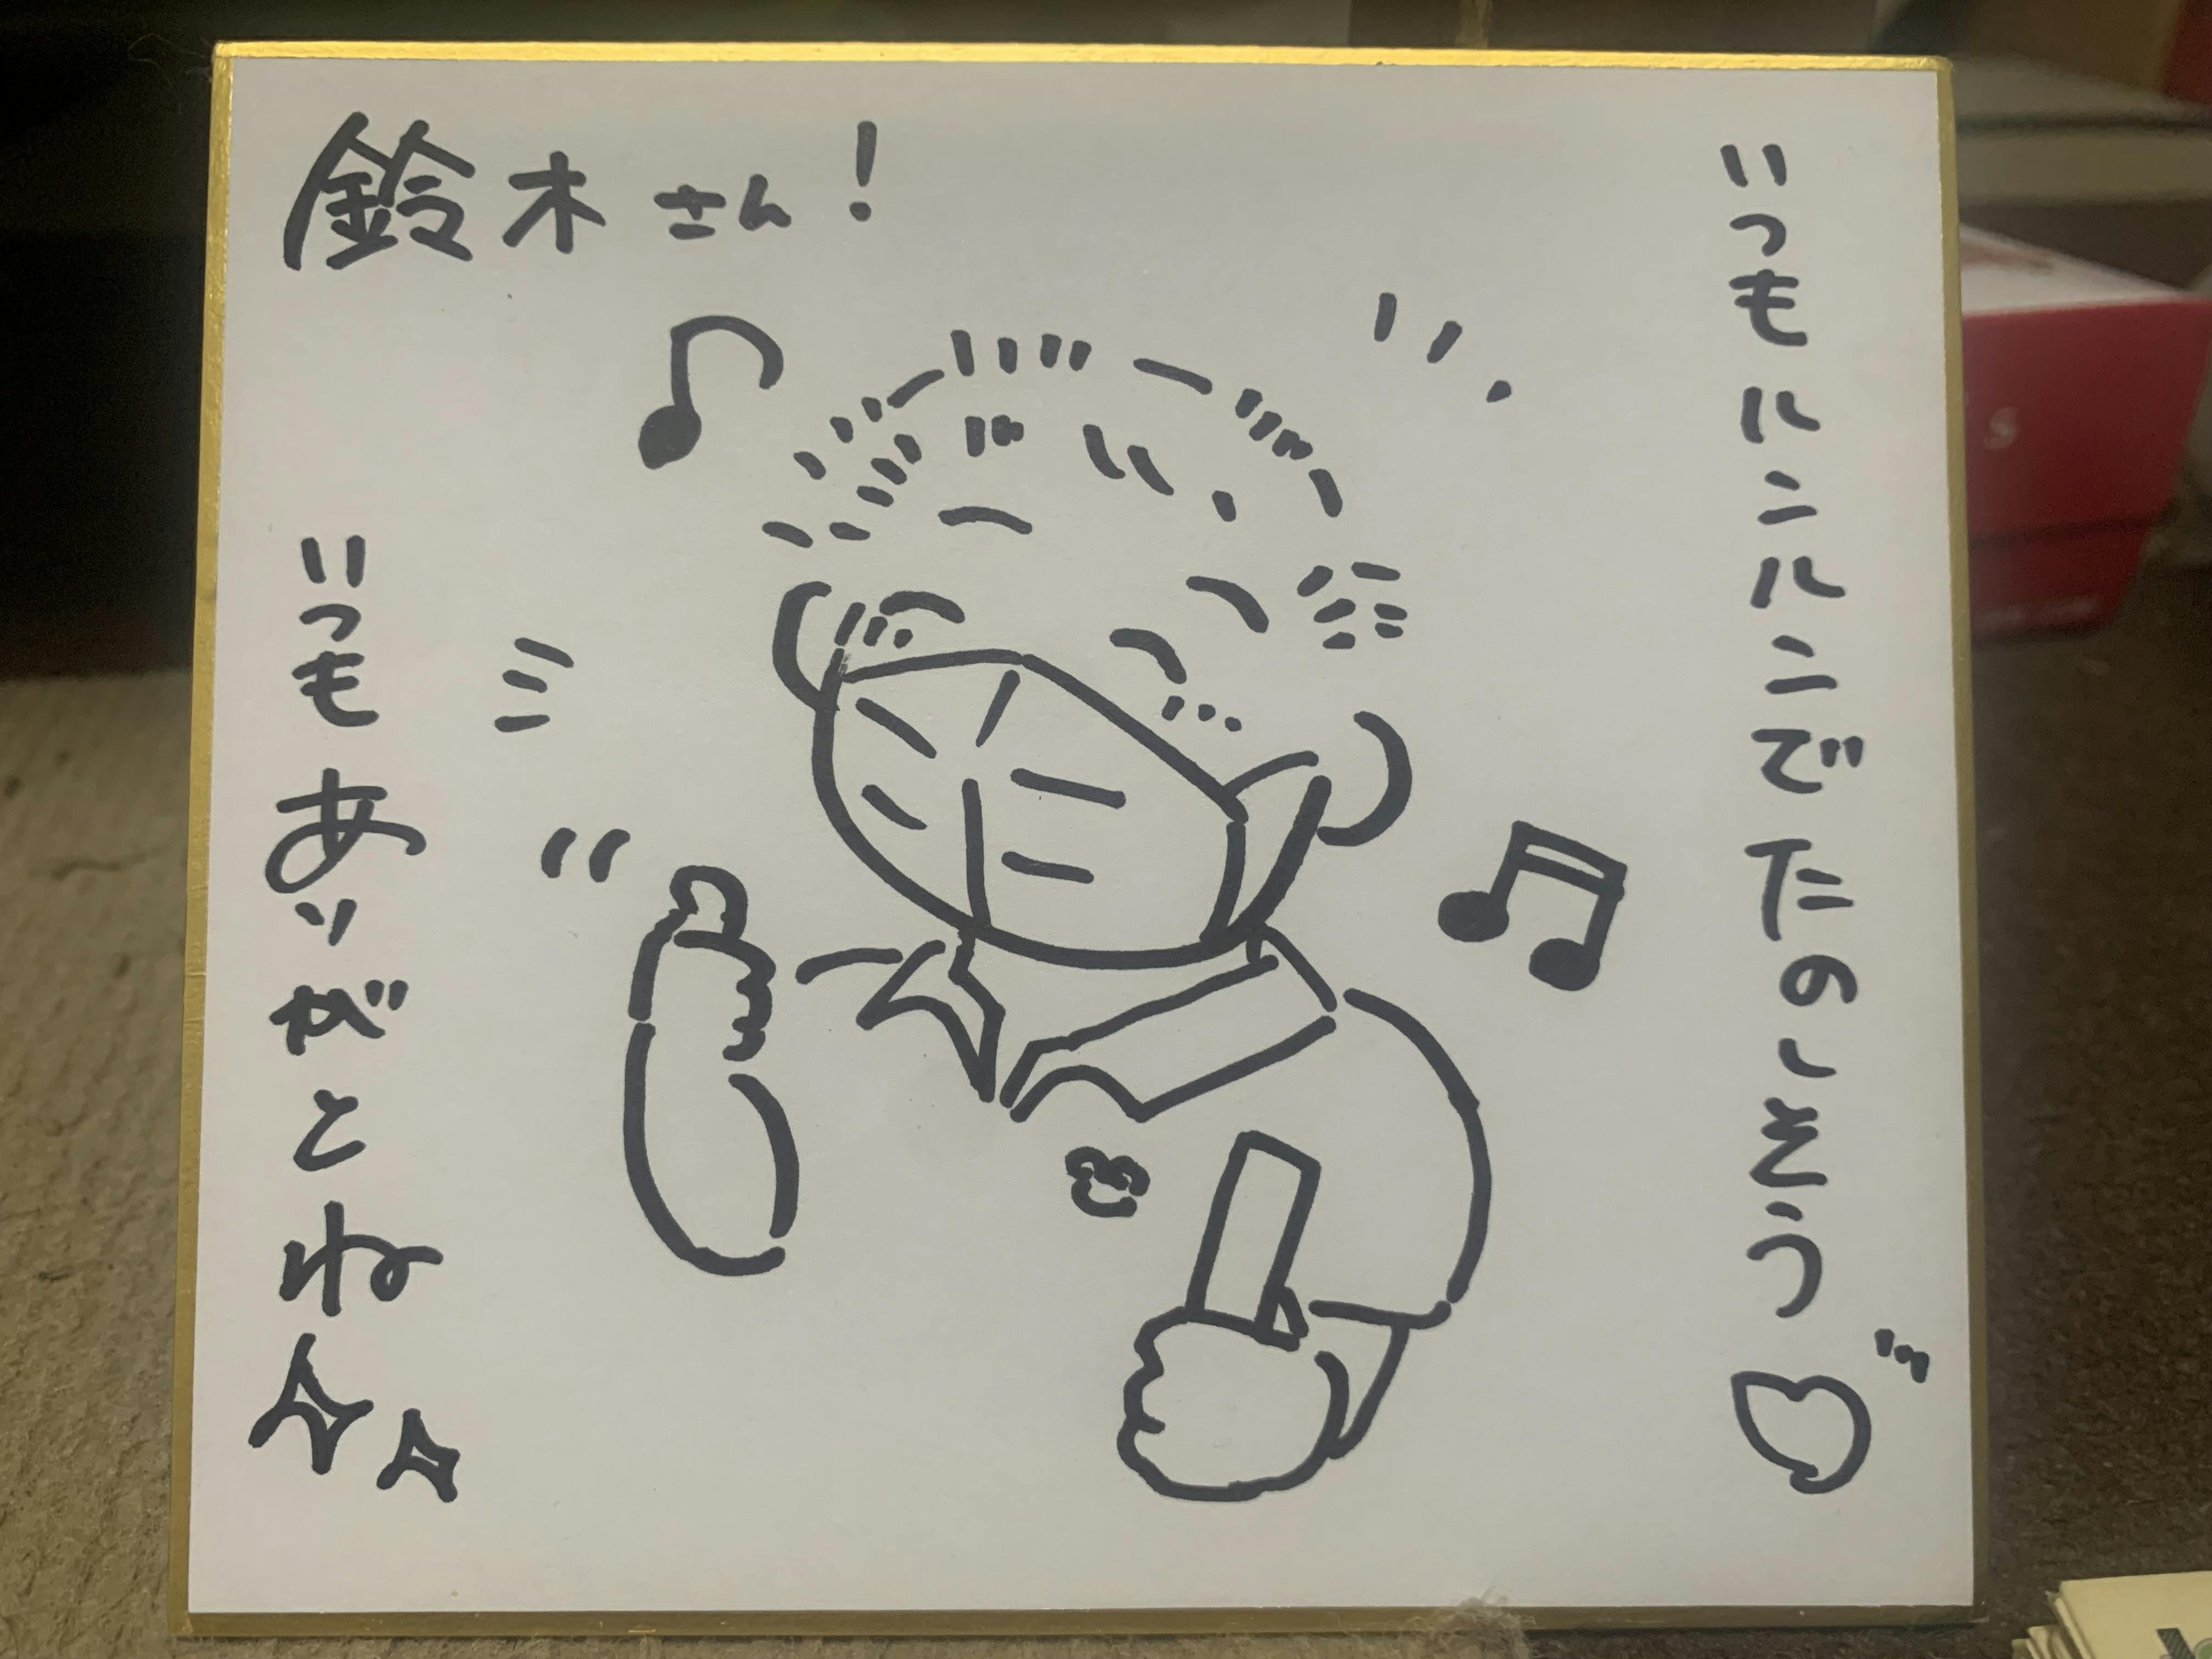 鈴木さん!
いつもルンルンでたのしそう♡
いつもありがとね
S